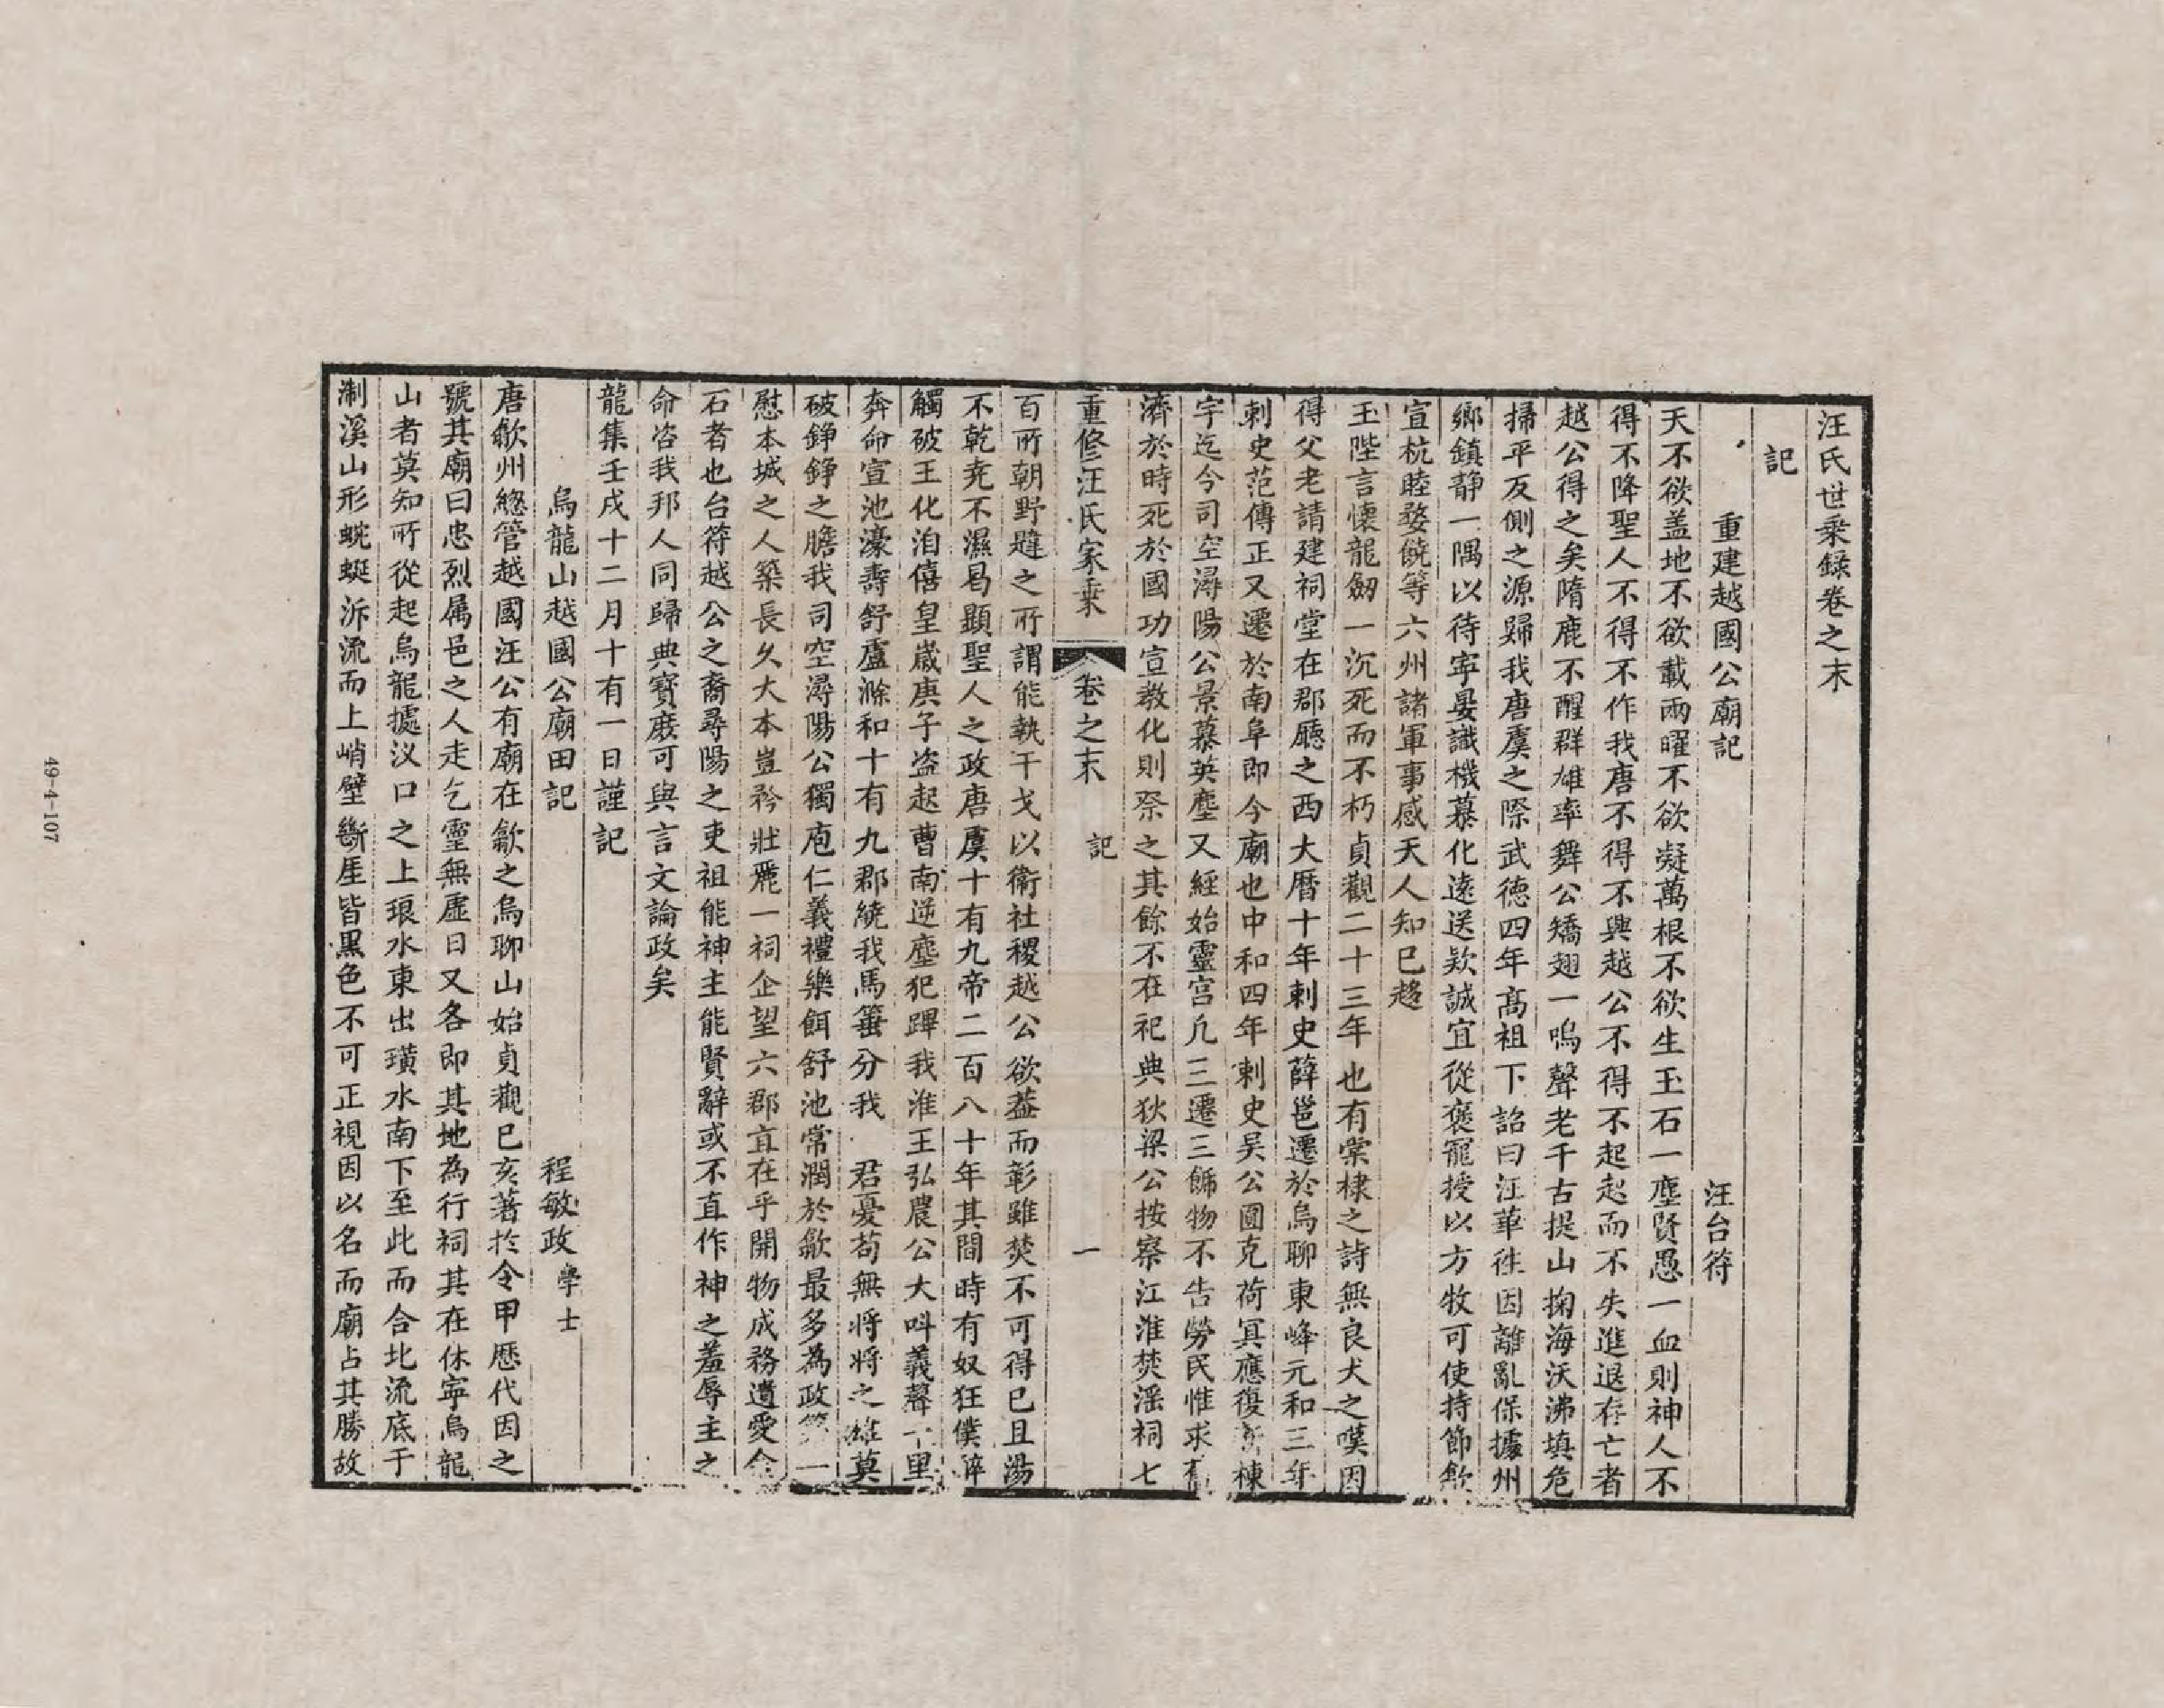 汪氏世乘錄卷之末
記
重建越國公廟記 汪台符
天不欲盖地不欲載兩曜不欲凝萬根不欲生玉石一塵賢愚一血則神人不
得不降聖人不得不作我唐不得不興越公不得不起起而不失進退存亡者
越公得之矣隋鹿不醒群雄率舞公矯翅一鳴聲老千古提山掬海沃沸填危
掃平反側之源歸我唐虞之際武德四年高祖下詔曰汪華徃因離亂保據州
鄉鎮静一隅以待寧晏識機慕化遠送欵誠宜從褒寵授以方牧可使持節歙
宣杭睦婺饒等六州諸軍事感天人知已趍
玉陛言懷龍劒一沉死而不朽貞觀二十三年也有棠棣之詩無良犬之嘆因
得父老請建祠堂在郡廳之西大曆十年刺史薛邕遷於烏聊東峰元和三年
刺史范傳正又遷於南阜即今廟也中和四年刺史吴公圓克荷冥應復新棟
宇迄今司空潯陽公景慕英塵又經始靈宫凢三遷三餙物不告勞民惟求福
濟於時死於國功宣教化則祭之其餘不在祀典狄梁公按察江淮焚滛祠七
重修汪氏家乗 卷之末 記 一
百所朝野韙之所謂能執干戈以衛社稷越公欲葢而彰雖焚不可得已且湯
不乾尭不濕易顯聖人之政唐虞十有九帝二百八十年其間時有奴狂僕悴
觸破王化洎僖皇歲庚子盗起曹南逆塵犯蹕我淮王弘農公大呌義聲千里
奔命宣池濠壽舒盧滁和十有九郡繞我馬箠分我 君憂苟無將將之雄莫
破錚錚之膽我司空潯陽公獨庖仁義禮樂餌舒池常潤於歙最多為政第一
慰本城之人築長久大本豈矜壯麗一祠企望六郡亘在乎開物成務遺愛金
石者也台符越公之裔尋陽之吏祖能神主能賢辭或不直作神之羞辱主之
命咨我邦人同歸典寳庻可與言文論政矣
龍集壬戌十二月十有一日謹記
烏龍山越國公廟田記 程敏政 學士
唐歙州緫管越國汪公有廟在歙之烏聊山始貞觀已亥著扵令甲歴代因之
號其廟曰忠烈属邑之人走乞靈無虛日又各即其地為行祠其在休寧烏龍
山者莫知所從起烏龍㩀汊口之上琅水東出璜水南下至此而合北流底于
淛溪山形蜿蜒泝流而上峭壁斷厓皆黒色不可正視因以名而廟占其勝故
49-4-107